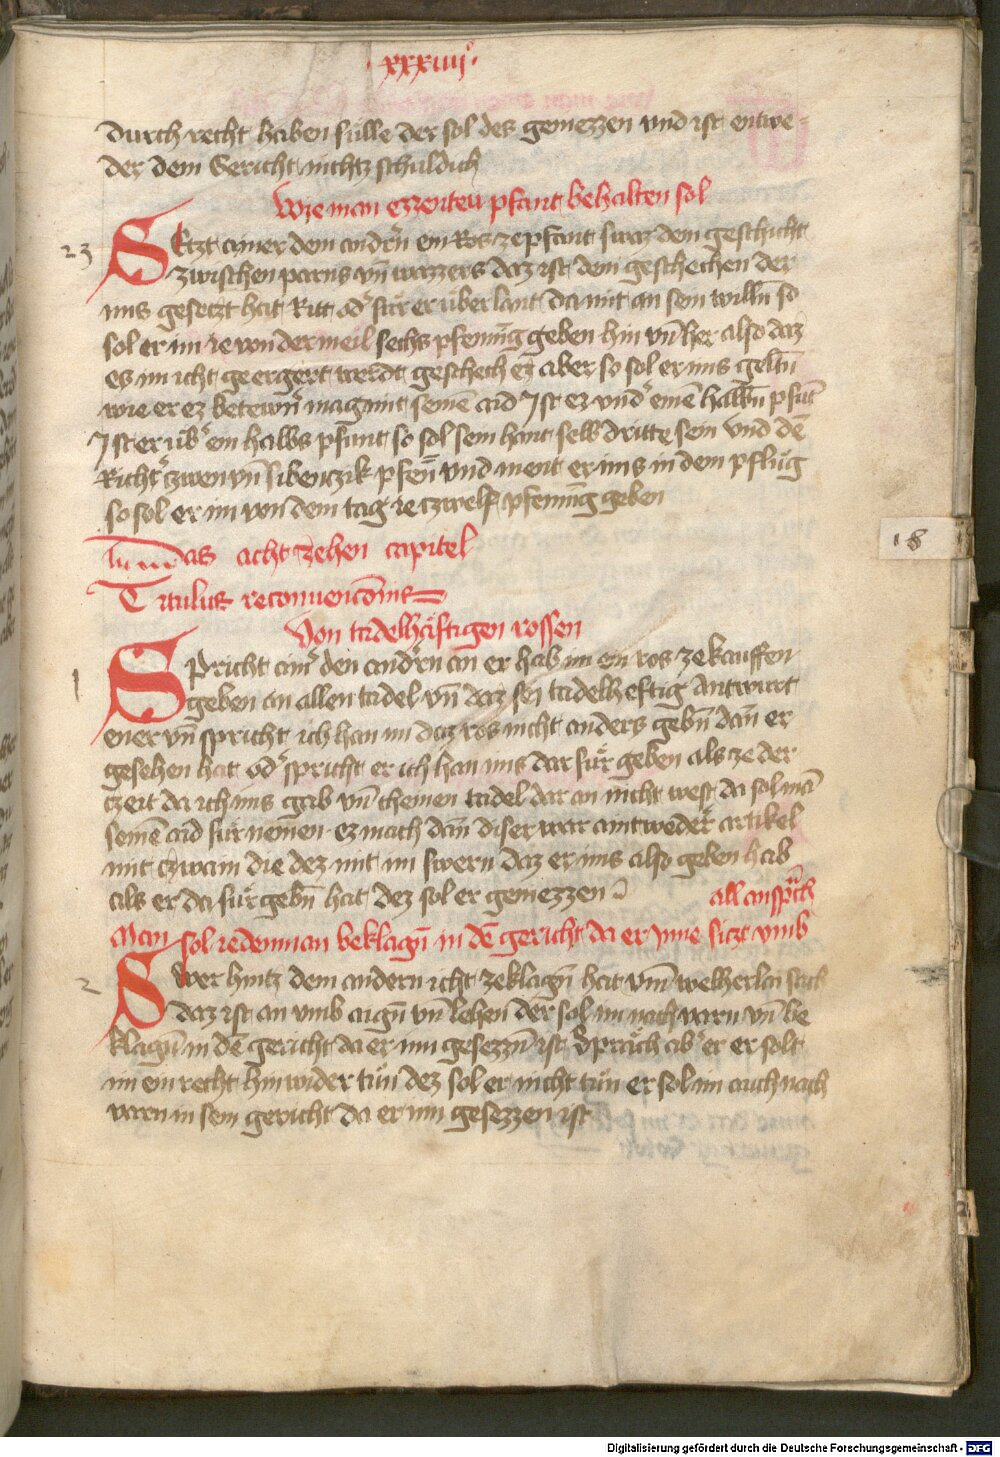 · xxxiiij° ·
durch recht haben sülle der sol des geniezzen vnd ist entwe-
der dem Gericht nichtz schuldich
Wie man ezzenteu pfant behalten sol
23 SEtzt ainer dem andrn ein Ros ze pfant swaz dem geschicht
zwischen parns vn wazzers daz ist dem geschechen der
ims gesetzt hat Ritt od' für er überlant da mit an sein willn so
sol er im ie von der meil sechs pfening geben hin vn her also daz
es im icht geergert werdt geschech ez aber so sol er ims geltn
wie er ez betewrn mag mit seinē aid Ist ez vnd' einē halbn pfūt
Ist er üb' ein halbs pfunt so sol sein hant selb dritte sein vnd dē
Richt' zwen vn sibenczik pfen vnd ment er ims in dem pflüg
so sol er im von dem tag ie czwelf pfening geben
Das acht zehen capitel
Titulus reconuencōnis
Von tadelhäftigen rossen
1 Spricht ain' den andrn an er hab im ein ros ze kauffen
geben an allen tadel vn daz sei tadelheftig Antwurt
ener vn spricht ich han im daz ros nicht anders gebn dan er
gesehen hat od' spricht er ich han ims dar für geben als ze der
czeit da ich ims gab vn chainen tadel dar an nicht west da sol mā
seinē aid für nemen ez mach dan diser war aintweder artikel
mit czwain die dez mit im swern daz er ims also geben hab
als er da für gebn hat dez sol er geniezzen
all ansprch
Man sol iedenman beklagn in dē gericht da er ynne siczt vmb
2 Swer hintz dem andern icht ze klagn hat vm welherlai sach
daz ist an vmb aign vn lehen der sol im nach varn vn be
klagn in dē gericht da er inn gesezzn ist Spräch ab' er er solt
im ein recht hin wider tün dez sol er nicht tün er sol im auch nach
varn in sein gericht da er inn gesezzen ist
18
Digitalisierung gefördert durch die Deutsche Forschungsgemeinschaft - DFG